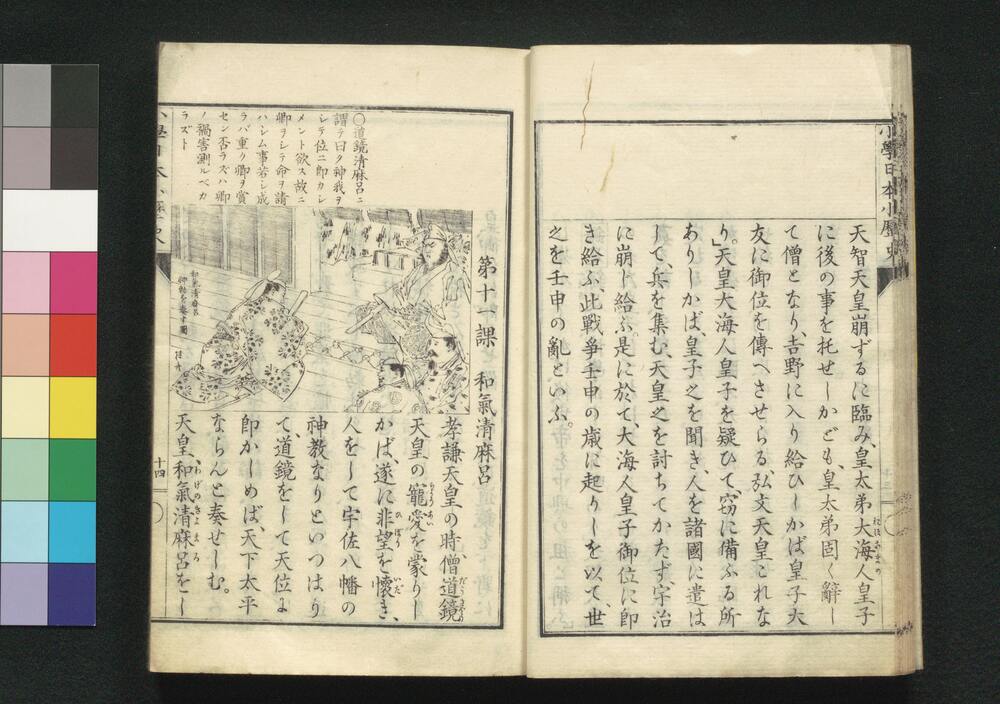 小學日本小歷史
天智天皇崩ずるに臨み、皇太弟大海人皇子
に後の事を托せしかども、皇太弟固く辭し
て僧となり、吉野に入り給ひしかば皇子大
友に御位を傳へさせらる、弘文天皇これな
り。天皇大海人皇子を疑ひて、窃に備ふる所
ありしかば、皇子之を聞き、人を諸國に遣は
して、兵を集む、天皇之を討ちてかたず、宇治
に崩し給ふ、是に於て、大海人皇子御位に即
き給ふ、此戰爭壬申の歳に起りしを以て、世
之を壬申の亂といふ。
〇道鏡清麻呂ニ
謂テ曰ク神我ヲ
シテ位ニ即カシ
メント欲ス故ニ
卿ヲシテ命ヲ請
ハシム事若シ成
ラバ重ク卿ヲ賞
セン否ラズハ卿
ノ禍害測ルベカ
ラズト
第十一課 和氣清麻呂
和氣清麻呂
神勅を奏す圖
孝謙天皇の時、僧道鏡
天皇の寵愛を蒙りし
かば、遂に非望を懷き、
人をして宇佐八幡の
神教なりといつはう
て、道鏡をして天位に
即かしめば、天下太平
ならんと奏せしむ。
天皇、和氣清麻呂をし
十四